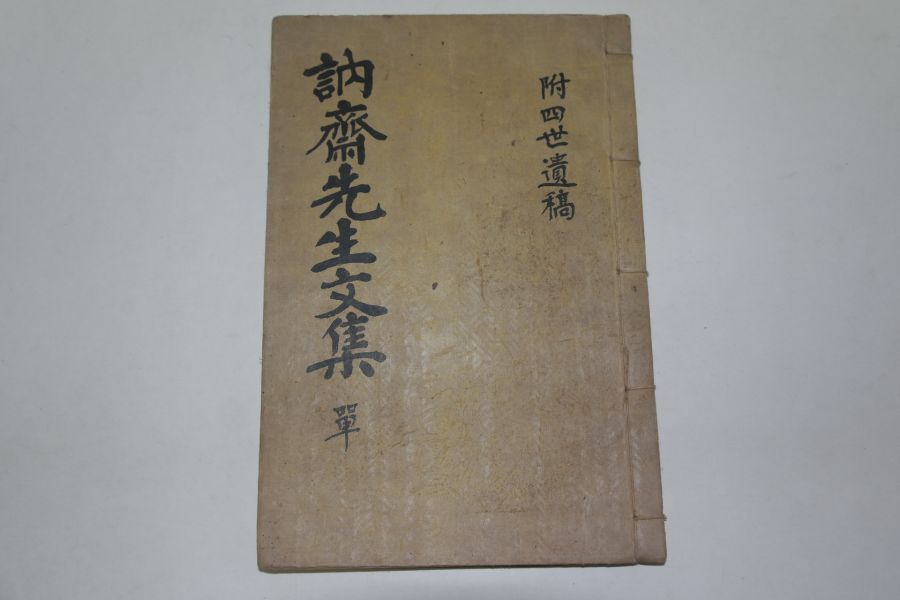 訥齋先生文集 單
附四世遺稿